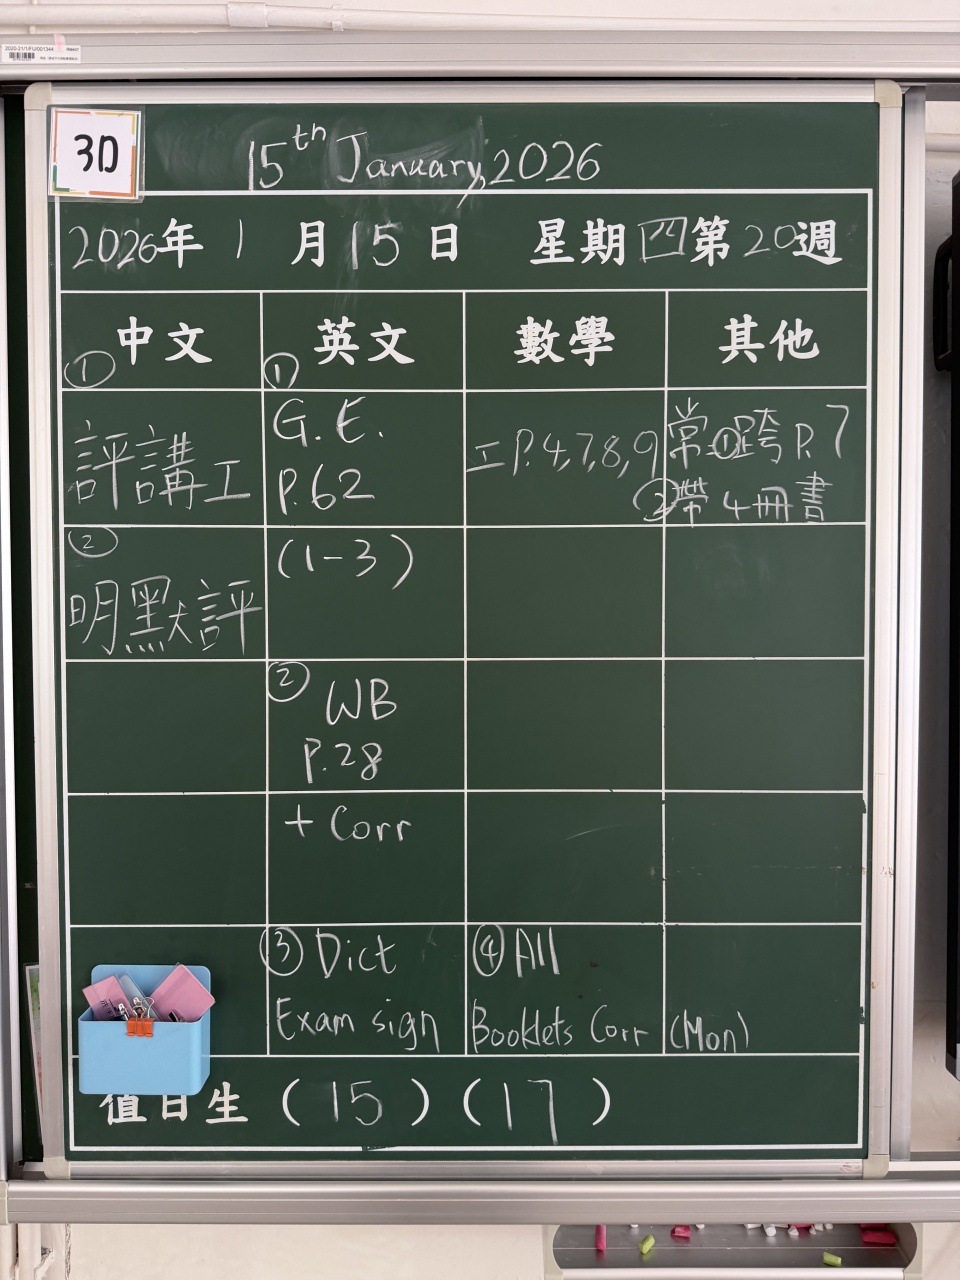 2020-21/1/FU/001344
3D
15th January, 2026
2026年1月15日 星期四第20週
中文 英文 數學 其他
① 評講工
② 明默評
① G.E.
P.62
(1-3)
② WB
P.28
+ Corr
③ Dict
Exam sign
工 P.4,7,8,9
④ All
Booklets Corr (Mon)
常①跨P.7
②帶4冊書
值日生 (15) (17)